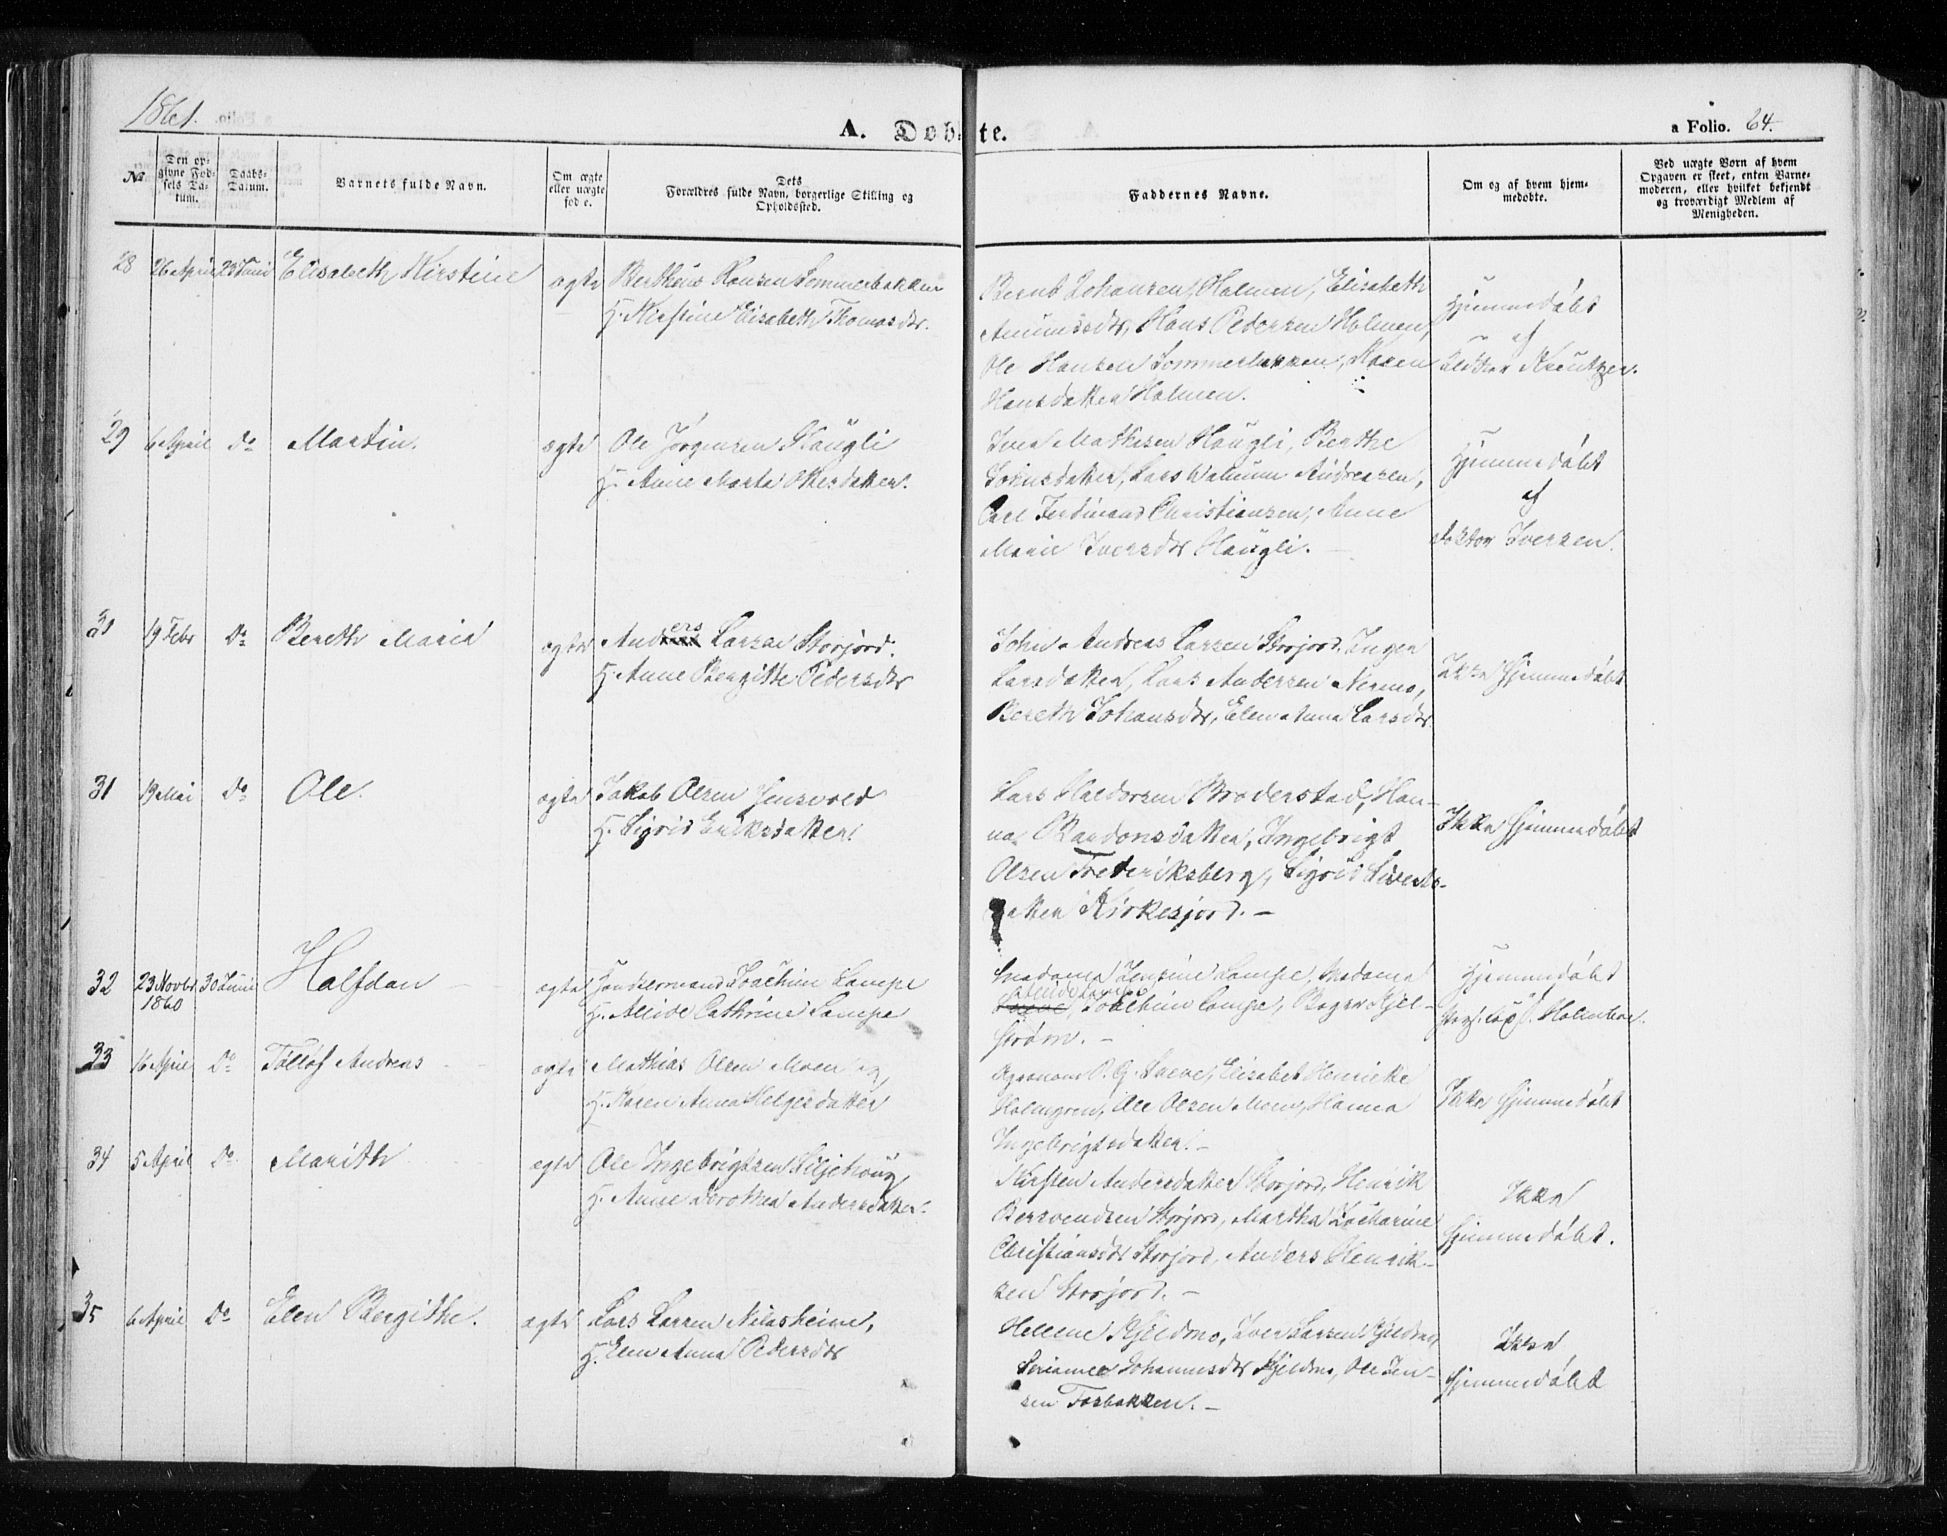 1861.
A. Døbte.
a Folio. 64.
No
Den opgivne Fødsels Datum.
Daabs-Datum.
Barnets fulde Navn.
Om ægte eller uægte føde.
Dets Forældres fulde Navn, borgerlige Stilling og Opholdssted.
Faddernes Navne.
Om og af hvem hjemmedøbte.
Ved uægte Børn af hvem Opgaven er skeet, enten Barnemoderen, eller hvilket bekjendt og troværdigt Medlem af Menigheden.
28 26 April 23 Juni Elisabeth Kirstine ægte Bertheus Hansen Sommerbakken
H. Kirstine Elisabeth Thomasdtr.
Bernt Johansen Holmen, Elisabeth
Amundsdtr, Hans Pedersen Holmen,
Ole Hansen Sommerbakken, Karen
Hansdatter Holmen.
Hjemmedøbt
af
Kreutzer.
29 6 April Do Martin. ægte Ole Jørgensen Haugli
H. Anne Marta Olesdatter.
Iver Mathisen Haugli, Berthe
Johnsdatter, Lars Andreasen,
Carl Ferdinand Christiansen, Anne
Marie Iversdtr Haugli. —
Hjemmedøbt
af
doktor Iversen.
31 19 Febr Do Bereth Maria ægte Anders Larsen Storjord.
H. Anne Bergitte Pedersdtr
John Andreas Larsen Storjord, Inger
Larsdatter, Lars Andersen Nermo,
Bereth Johansdtr, Elen Anna Larsdtr
Ikke Hjemmedøbt
31 19 Mai Do Ole. ægte Jakob Olsen Jensvold
H. Sigrid Eriksdatter.
Lars Haldorsen Broderstad, Han-
na Baardonsdatter, Ingebrigt
Olsen Frederiksberg, Sigrid Siverts-
datter Kirkesjord. —
Ikke Hjemmedøbt
32 23 Novbr 1860 30 Juni Halfdan ægte Handelsmand Joachim Lampe
H. Alide Cathrine Lampe
Madame Jensine Lampe, Madame
Joachim Lampe, Roger Kjel-
strøm. —
Hjemmedøbt
Holmboe.
33 16 April Do Tølløf Andreas ægte Mathias Olsen Moen og
H. Karen Anna Helgesdatter
Agronom O. G. Sæve, Elisabet Henrikke
Holmgren, Ole Olsen Moen, Hanna
Ingebrigtsdatter. —
Ikke Hjemmedøbt
34 5 April Do Marith ægte Ole Ingebrigtsen Liljehoug
H. Anne Dorothea Andersdatter.
Kirsten Andersdatter Storjord, Henrik
Bersvendsen Storjord, Martha Zacharine
Christiansdtr Storjord, Anders Henrik-
sen Storjord. —
Ikke
Hjemmedøbt.
35 6 April Do Elen Bergithe. ægte Lars Larsen Nilasheim,
H. Elen Anna Pedersdtr
Hellene Kjeldmo, Iver Larsen Kjeldmo,
Seriamee Johannesdtr Kjeldmo, Ole Jen-
sen Fosbakken. —
Ikke
Hjemmedøbt